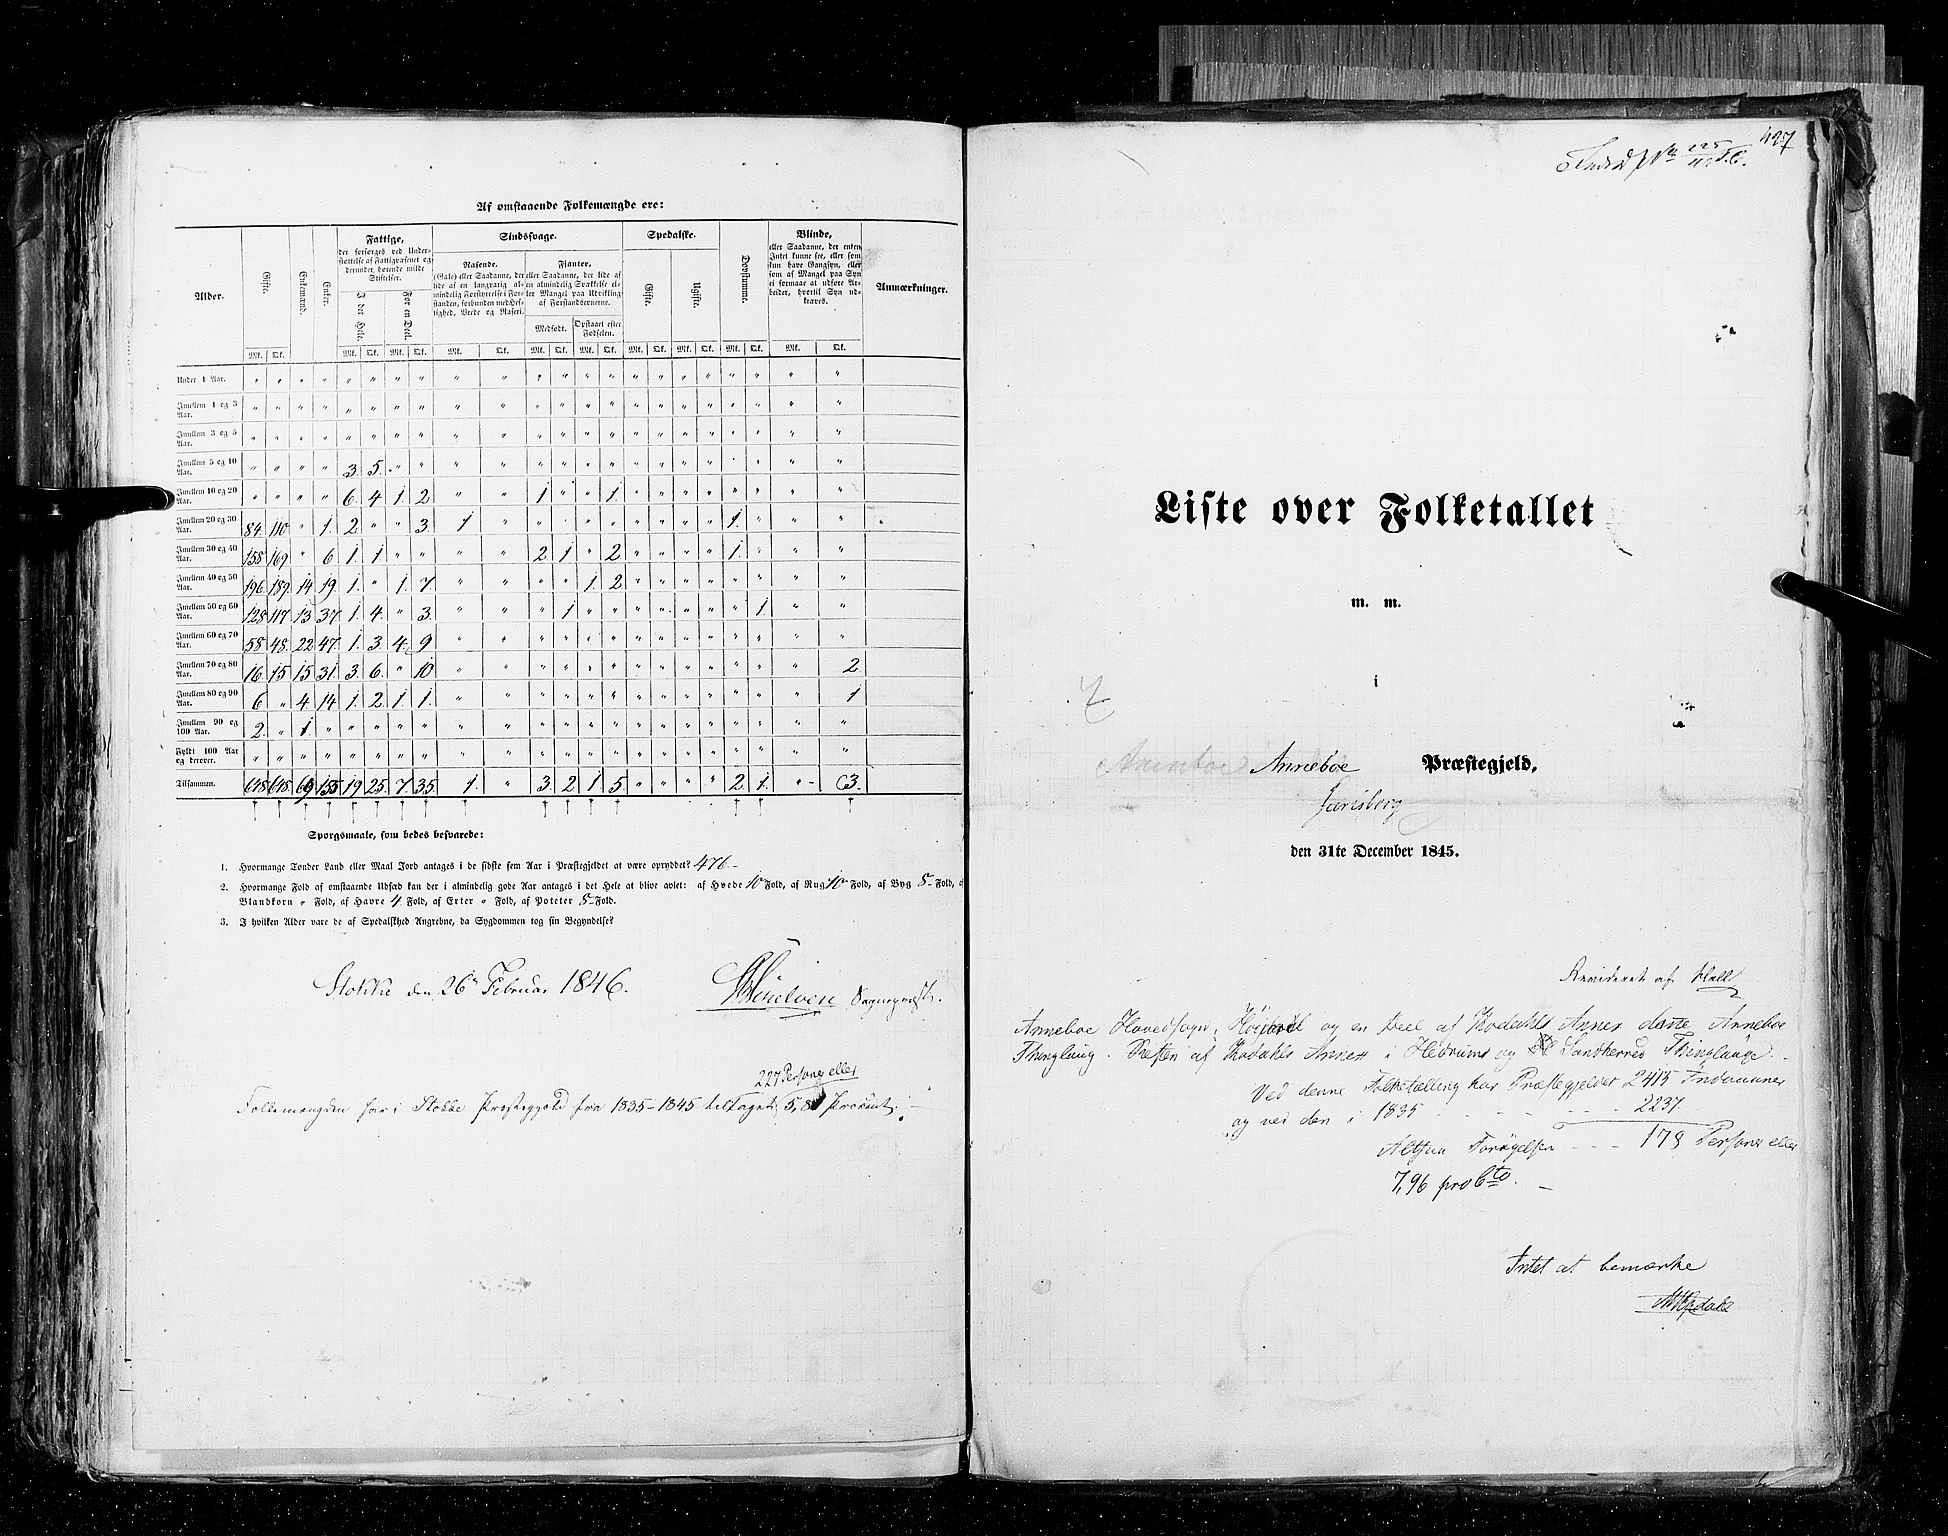 Af omstaaende Folkemængde ere:
Alder.
Gifte.
Enkemænd.
Enker.
Fattige,
der forsørges ved Under-
støttelse af Fattigvæsenet og
derunder, hørende milde
Stiftelser.
I det Hele.
For en Deel.
Sindssvage.
Rasende.
(Gale) eller Saadanne, der
lide af en langvarig al-
mindelig Forstyrrelse i For-
standen, forbunden med Hef-
tighed, Vrede og Raseri.
Fjanter,
eller Saadanne, der lide af
en almindelig Svækkelse el-
ler Mangel paa Udvikling
af Forstandsevnerne.
Medfødt.
Opstaaet efter
Fødselen.
Spedalske.
Gifte.
Ugifte.
Døvstumme.
Blinde,
eller Saadanne, der enten
Intet kunne see, eller som
kun have Gangsyn, eller
som af Mangel paa Syn
ei formaae at udføre Ar-
beider, hvortil Syn ud-
kræves.
Anmærkninger.
Mk. Qk. Mk. Qk. Mk. Qk. Mk. Qk. Mk. Qk. Mk. Qk. Mk. Qk. Mk. Qk. Mk. Qk. Mk. Qk.
Under 1 Aar. " " " " " " " " " " " " " " " " " " " " " "
Imellem 1 og 3 Aar. " " " " " " " " " " " " " " " " " " " " " "
Imellem 3 og 5 Aar. " " " " " " " " " " " " " " " " " " " " " "
Imellem 5 og 10 Aar. " " " " 3. 5. " " " " " " " " " " " " " " " "
Imellem 10 og 20 Aar. " " " " 6. 4 1. 2 " " 1 " " 1. " " " " " " " "
Imellem 20 og 30 Aar. 84. 110 " 1. 2 " " 3. 1 " " " " " " " " " 1. " " "
Imellem 30 og 40 Aar. 158 169 " 6 1. 1. " " " " 2 1 " 2 " " " " 1. " " "
Imellem 40 og 50 Aar. 196 189. 14 19. 1. " 1. 7 " " " " 1. 2 " " " " " " " "
Imellem 50 og 60 Aar. 128 117 13 37 1. 4. " 3. " " " 1 " " " " " " " 1. " "
Imellem 60 og 70 Aar. 58 48. 22 47. 1. 3. 4. 9 " " " " " " " " " " " " " "
Imellem 70 og 80 Aar. 16 15 15 31. 3. 6. " 10 " " " " " " " " " " " " " 2
Imellem 80 og 90 Aar. 6 " 4 14 1. 2 1. 1. " " " " " " " " " " " " " 1
Imellem 90 og 100 Aar. 2. " 1. " " " " " " " " " " " " " " " " " " "
Fyldt 100 Aar og derover. " " " " " " " " " " " " " " " " " " " " " "
Tilsammen. 648 648 69 155 19 25 7. 35 1. " 3. 2 1 5 " " " " 2 1. " 3.
Spørgsmaale, som bedes besvarede:
1. Hvormange Tønder Land eller Maal Jord antages i de sidste fem Aar i Præstegjeldet at være opryddet? 476 -
2. Hvormange Fold af omstaaende Udsæd kan der i almindelig gode Aar antages i det Hele at blive avlet: af Hvede 10 Fold, af Rug 10 Fold, af Byg 8 Fold, af
Blandkorn " Fold, af Havre 4 Fold, af Erter " Fold, af Poteter 8 Fold.
3. I hvilken Alder vare de af Spedalskhed Angrebne, da Sygdommen tog sin Begyndelse?
Stokke den 26 Februar 1846.
Sognepræst.
227 Personer eller
Folkemængden har i Stokke Præstegjeld fra 1835-1845 tiltaget 5,8 Procent.
427
Liste over Folketallet
m. m.
i
Anneboe Anneboe Præstegjeld,
Jarlsberg
den 31te December 1845.
Revideret af Hall
Anneboe Hovedsogn, og en Deel af Kodahls Annex danne Anneboe
Thinglaug. Resten af Kodahls Annex i Hedrums og Sandherred Thinglauge.
Ved denne Folketælling har Præstegjeldet 2415 Indvaanere
og ved den i 1835 - - - - - 2237.
Altsaa Forøgelsen - - - 178 Personer eller
7,96 pro Cto. -
Intet at bemærke